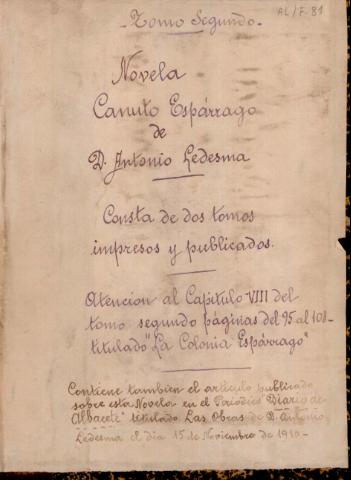 -Tomo Segundo-
AL/F-81
Novela
Canuto Espárrago
de
D. Antonio Ledesma
Consta de dos tomos
impresos y publicados.
Atención al Capitulo VIII del
tomo segundo páginas del 95 al 108-
titulado "La Colonia Espárrago"
Contiene tambien el articulo publicado
sobre esta Novela en el Periodico "Diario de
Albacete" titulado Las Obras de D. Antonio
Ledesma el dia 15 de Noviembre de 1910-